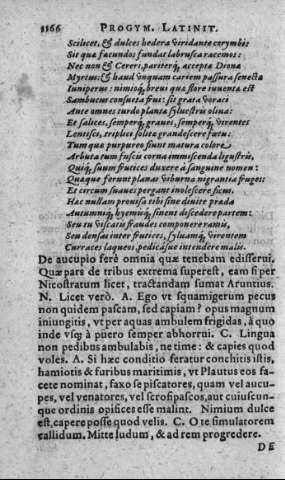 1166 PROGYM. LATINIT.
Scilicet, & dulces hederæ viridante corymbi:
Sit quæ fæcundos fundat labrusca racemos:
Nec non & Cereri, pariterq́, accepta Dionæ
Myrtus: & haud vnquam cariem passura senectæ
Iuniperus: nimioq́, breuis quæ flore iuuenta est
Sambucus consueta frui: sit grata voraci
Ante omnes turdo planta syluestris oliua:
Et salices, semperq́, graues, semperq́, virentes
Lentisci, triplici solitæ grandescere fœtu:
Tum quæ purpureo siunt matura colore
Arbuta tum fuscis corna immiscenda ligustris,
Quiq́, suum frutices duxere à sanguine nomen:
Quæque ferunt planæ viburna migrantia fruges:
Et circum suaues pergant inolescere ficus.
Hæc nullam prouisa tibi sine diuite præda
Autumniq́, hyemisq́, sinent discedere partem:
Seu tu viscatis fraudes componere ramis,
Seu densas inter frutices, syluamq́, virentem
Curraces laqueos, pedicásue intendere malis.
De aucupio ferè omnia quæ tenebam edisserui.
Quæ pars de tribus extrema superest, eam si per
Nicostratum licet, tractandam sumat Aruntius.
N. Licet verò. A. Ego vt squamigerum pecus
non quidem pascam, sed capiam? opus magnum
iniungitis, vt per aquas ambulem frigidas, à quo
inde vsq́ à puero semper abhorrui. C. Lingua
non pedibus ambulabis, ne time: & capies quod
voles. A. Si hæc conditio feratur conchitis istis,
hamiotis & furibus maritimis, vt Plautus eos fa-
cetè nominat, faxo se piscatores, quam vel aucu-
pes, vel venatores, vel scrofipascos, aut cuiuscun-
que ordinis opifices esse malint. Nimium dulce
est, capere posse quod velis. C. O te simulatorem
callidum. Mitte ludum, & ad rem progredere.
DE